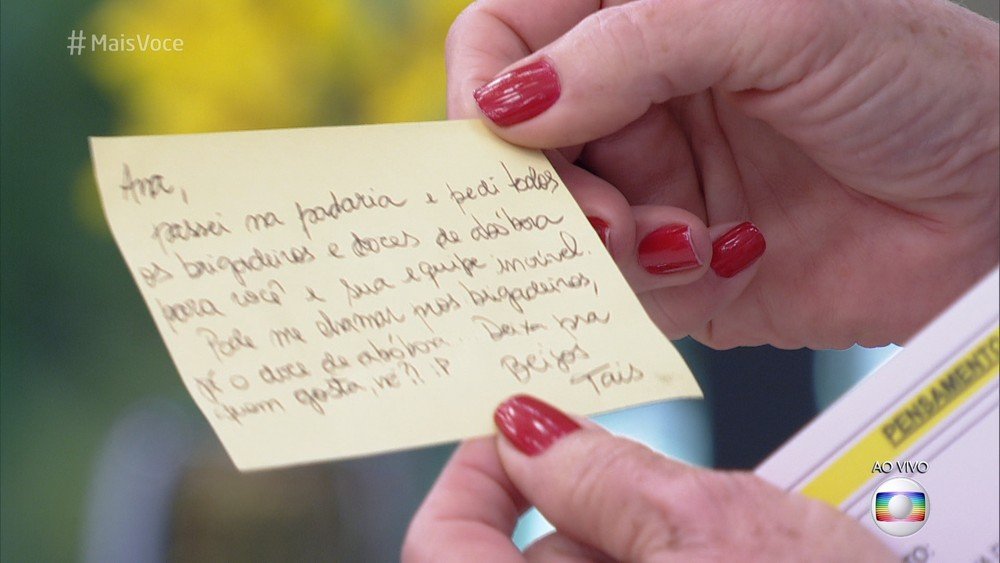 #MaisVoce
Ana,
passei na padaria e pedi todos
os brigadeiros e doces de abóbora
para você e sua equipe incrível.
Pode me chamar pros brigadeiros,
já o doce de abóbora... Deixa pra
quem gosta, né?! :P
Beijos
Tais
PENSAMENTO
AO VIVO